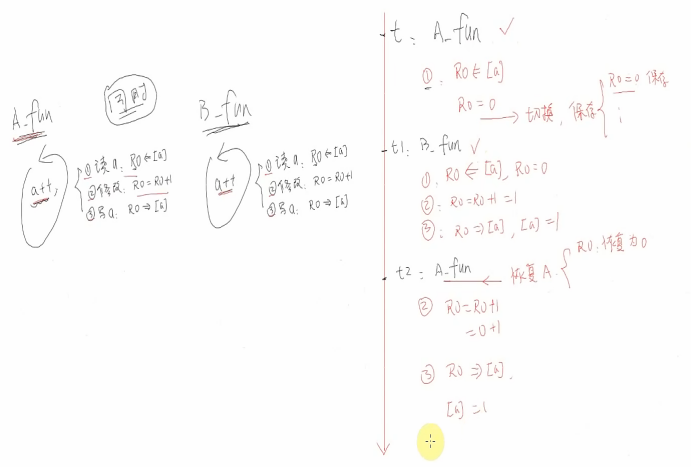 A_fun
同时
B_fun
a++;
① 读a: R0⇐[a]
② 修改: R0=R0+1
③ 写a: R0⇒[a]
a++
① 读a: R0⇐[a]
② 修改: R0=R0+1
③ 写a: R0⇒[a]
t: A_fun ✓
①. R0⇐[a]
R0=0 → 切换, 保存 { R0=0 保存
⋮
t1: B_fun ✓
①. R0⇐[a], R0=0
②: R0=R0+1=1
③: R0⇒[a], [a]=1
t2: A_fun ← 恢复A. { R0:恢复为0
② R0=R0+1
=0+1
③ R0⇒[a].
[a]=1